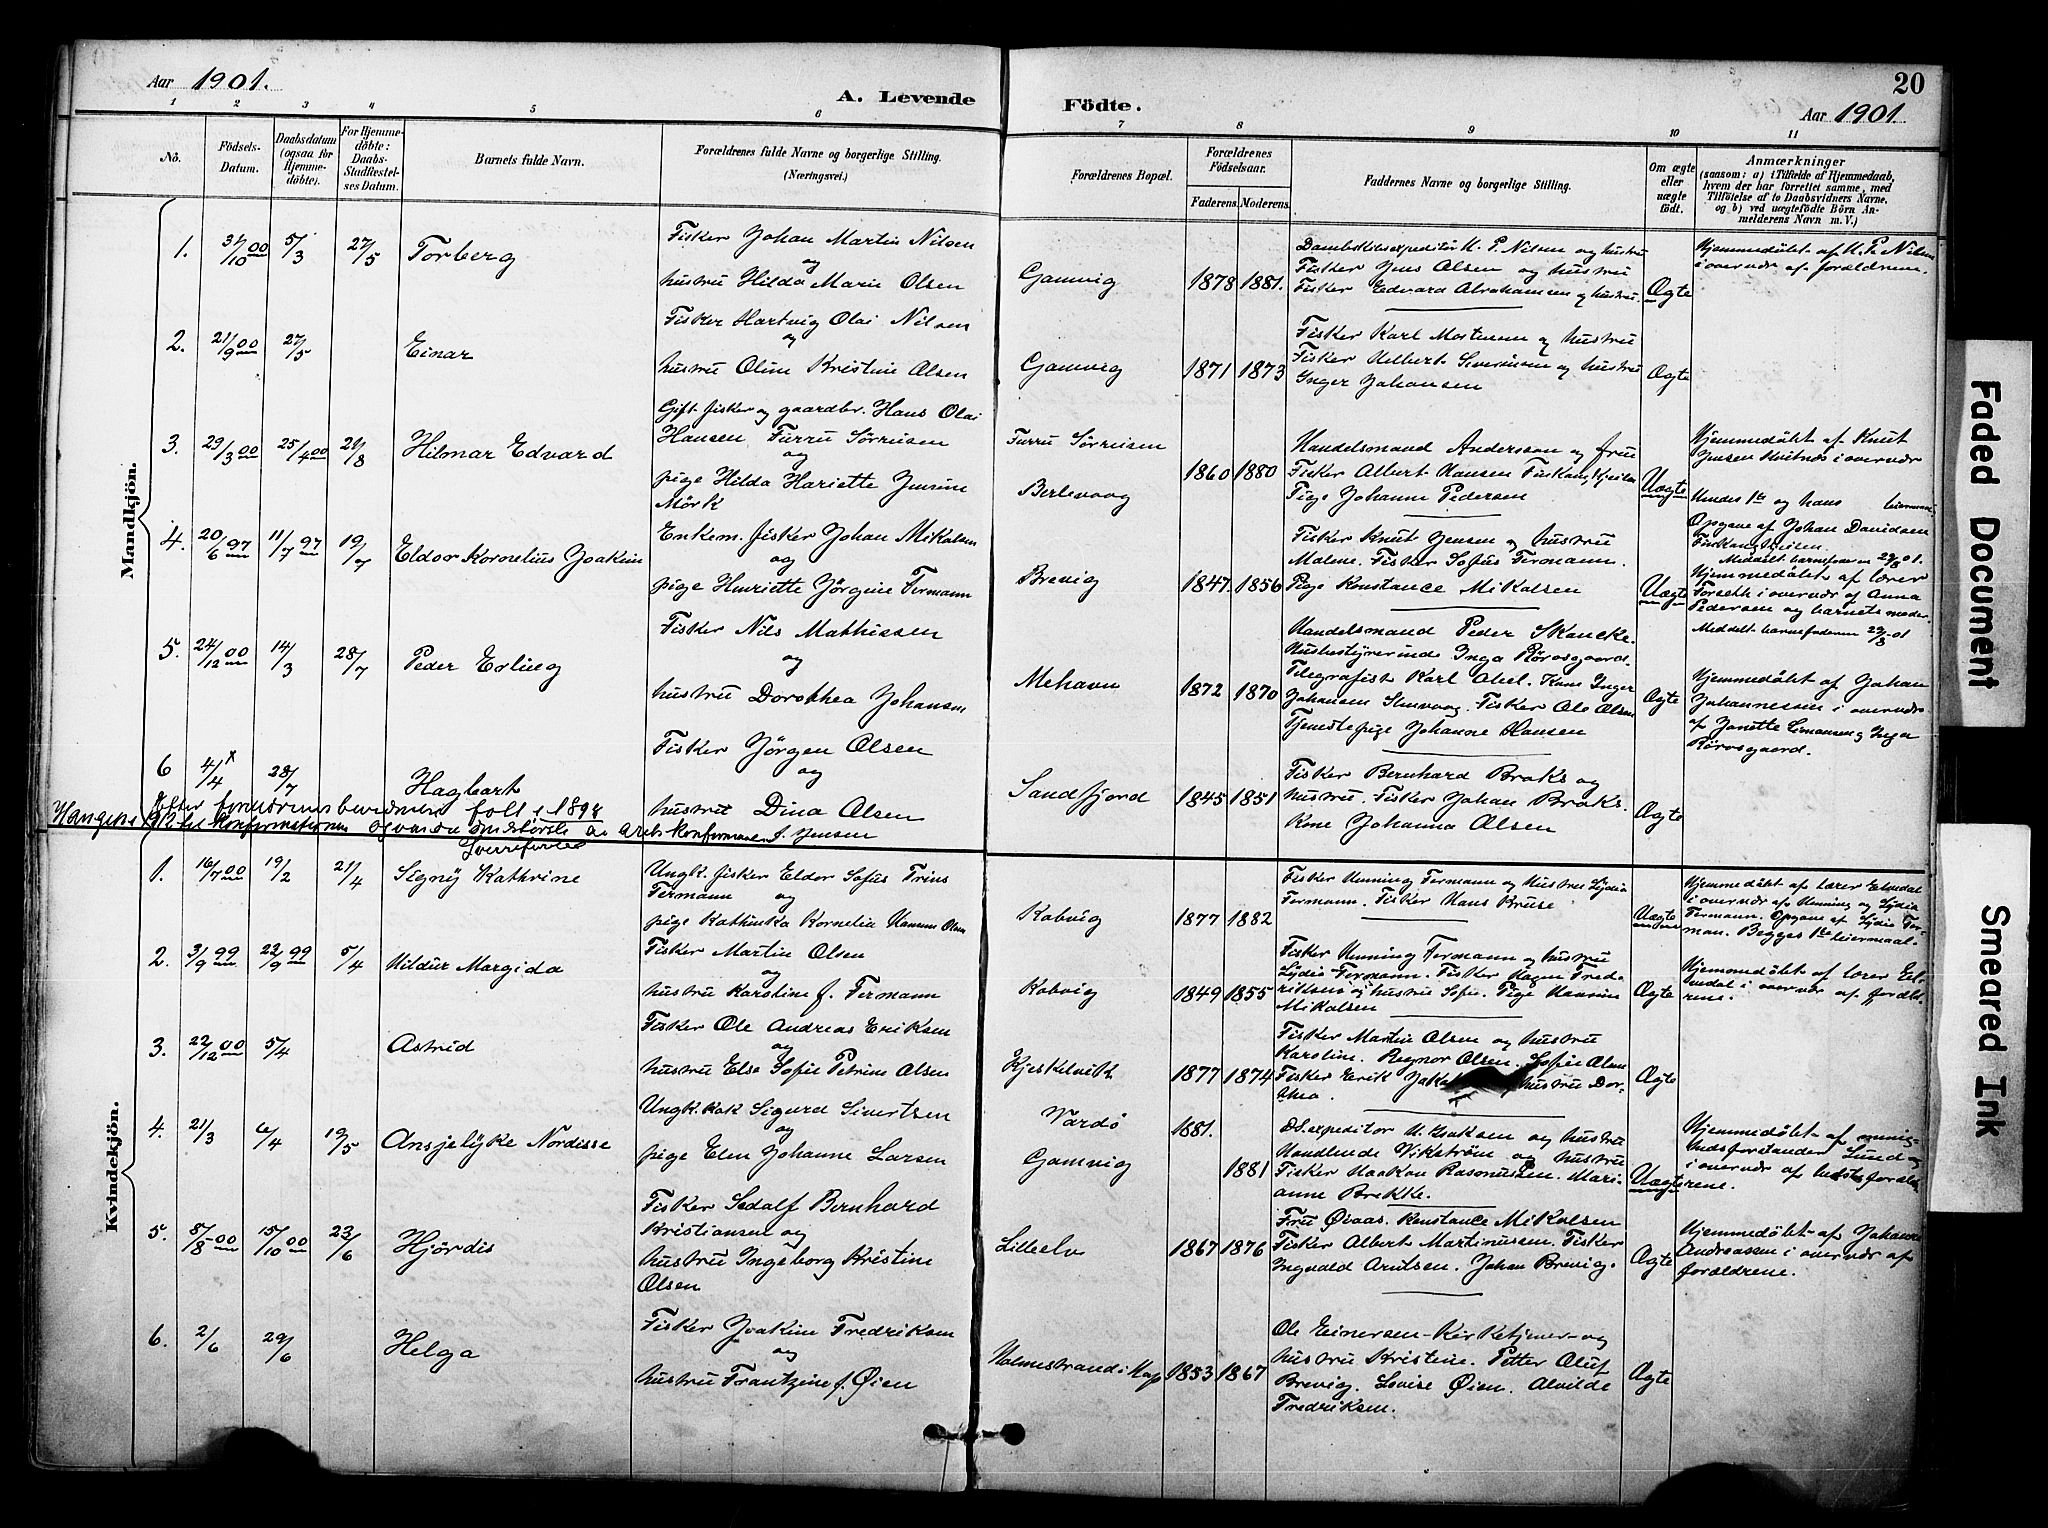 Aar 1901.
A. Levende Födte.
20
Aar 1901.
1 2 3 4 5 6 7 8 9 10 11
No.
Födsels-
Datum.
Daabsdatum
(ogsaa for
Hjemme-
döbte).
For Hjemme-
döbte:
Daabs-
Stadfæstel-
ses Datum.
Barnets fulde Navn.
Forældrenes fulde Navne og borgerlige Stilling.
(Næringsvei.)
Forældrenes Bopæl.
Forældrenes
Födselsaar.
Faderens. Moderens.
Faddernes Navne og borgerlige Stilling.
Om ægte
eller
uægte
födt.
Anmærkninger
(saasom: a) i Tilfælde af Hjemmedaab,
hvem der har forrettet samme, med
Tilföielse af to Daabsvidners Navne,
og b) ved uægtefödte Börn An-
melderens Navn m. V.)
Mandkjön.
1. 31/10 00 5/3 27/5 Torberg
Fisker Johan Martin Nilsen
og
hustru Hilda Marie Olsen
Gamvig 1878 1881.
Dambskibsexpeditör K. P. Nilsen og hustru
Fisker Jens Olsen og hustru
Fisker Edvard Abrahamsen og hustru.
Ægte
Hjemmedöbt af K. P. Nilsen
i overvær af forældrene.
2. 21/9 00 27/5 Einar
Fisker Hartvig Olai Nilsen
og
hustru Oline Kristine Olsen
Gamvig 1871 1873
Fisker Karl Mortensen og hustru
Fisker Helbert Severinsen og hustru
Inger Johansen
Ægte
3. 29/3 00 25/4 00 21/8 Hilmar Edvard
Gift fisker og gaardbr. Hans Olai
Hansen Furru Sörreisen
og
pige Hilda Hariette Jensine
Mörk
Furru Sörreisen
Berlevaag
1860 1880
Handelsmand Anderssen og frue
Fisker Albert Hansen
Pige Johanne Pedersen
Uægte
Hjemmedöbt af Knut
Jensen Hvitnes i overvær
Hendes 1ste og hans leiermaal.
Opgave af Johan Davidsen
Meddelt barnefaderen 29/8 01.
4. 20/6 97 11/7 97 19/7 Eldor Kornelius Joakim
Enkem. fisker Johan Mikalsen
og
pige Henriette Jörgine Fermann
Brevig 1847. 1856
Fisker Knut Jensen og hustru
Malene. Fisker Sofus Fermann.
Pige Konstance Mikalsen
Uægte
Hjemmedöbt af lærer
Forseth i overvær af Anna
Pedersen og barnets moder.
Meddelt barnefaderen 29/8 01
5. 24/12 00 14/3 28/7 Peder Erling
Fisker Nils Mathissen
og
hustru Dorothea Johansen
Mehavn 1872 1870
Handelsmand Peder Skancke.
Husbestyrerinde Inga Rörosgaard.
Telegrafist Karl Abel. Kone Inger
Johansen Stenvaag. Fisker Ole Olsen
Tjenestepige Johanne Hansen
Ægte
Hjemmedöbt af Johan
Johannessen i overvær
af Janette Simonsen og Inga
Rörosgaard.
6 4/4 x 28/7 Hagbart
Fisker Jörgen Olsen
og
hustru Dina Olsen
Sandfjord 1845 1851
Fisker Bernhard Braks og
hustru. Fisker Johan Braks.
Kone Johanna Olsen
Ægte
Kvindekjön.
1. 16/7 00 19/2 21/4 Signy Kathrine
Ungk. fisker Eldor Sofus Trins
Fermann og
pige Kathinka Kornelia Hansen Olsen
Kobvig 1877 1882
Fisker Henning Fermann og hustru Lydia
Fermann. Fisker Hans Kruse.
Uægte
Hjemmedöbt af lærer Eilvedal
i overvær af Henning og Lydia
Fermann. Opgave af Lydia Fer-
man. Begges 1ste leiermaal.
2. 3/9 99 22/9 99 5/4 Hildur Margida
Fisker Martin Olsen
og
hustru Karoline f. Fermann
Kobvig 1849 1855
Fisker Henning Fermann og hustru
Lydia Fermann. Fisker Hagen Fred-
riksen og hustru Sofie. Pige Hansine
Mikalsen
Ægte
Hjemmedöbt af lærer Eil-
vedal i overvær af foræld-
rene.
3. 22/12 00 5/4 Astrid
Fisker Ole Andreas Eriksen
og
hustru Else Sofie Petrine Olsen
Kjeskelvik 1877 1874
Fisker Martin Olsen og hustru
Karoline. Regnor Olsen. Sofie Olsen
Fisker Erik Jakob hustru Dor-
thea.
Ægte
4. 21/3 6/4 19/5 Ansjelyke Nordisse
Ungk. kok Sigurd Sivertsen
og
pige Elen Johanne Larsen
Vardö 1881.
Gamvig 1881
D.S. expeditör H. Isaksen og hustru
Handlende Vikström og hustru
Fisker Haakon Rasmussen. Mari-
anne Brekke.
Uægte
Hjemmedöbt af menig-
hedsforstander Lund
i overvær af forælderene.
5. 8/8 00 15/10 00 23/6 Hjördis
Fisker Sedolf Bernhard
Kristiansen og
hustru Ingeborg Kristine
Olsen
Lilleelv 1867 1876
Fru Öiaas. Konstance Mikalsen
Fisker Albert Martinussen. Fisker
Ingvald Arntsen. Johan Brevig.
Ægte
Hjemmedöbt af Johannes
Andreassen i overvær af
forældrene.
6. 2/6 29/6 Helga
Fisker Joakim Fredriksen
og
hustru Frantzine f. Öien
Holmestrand i Kap 1853 1867
Ole Einersen-Kirketjener-og
hustru Kristine. Petter Oluf
Brevig. Lovise Öien. Alvilde
Fredriksen.
Ægte
Faded Document
Smeared Ink